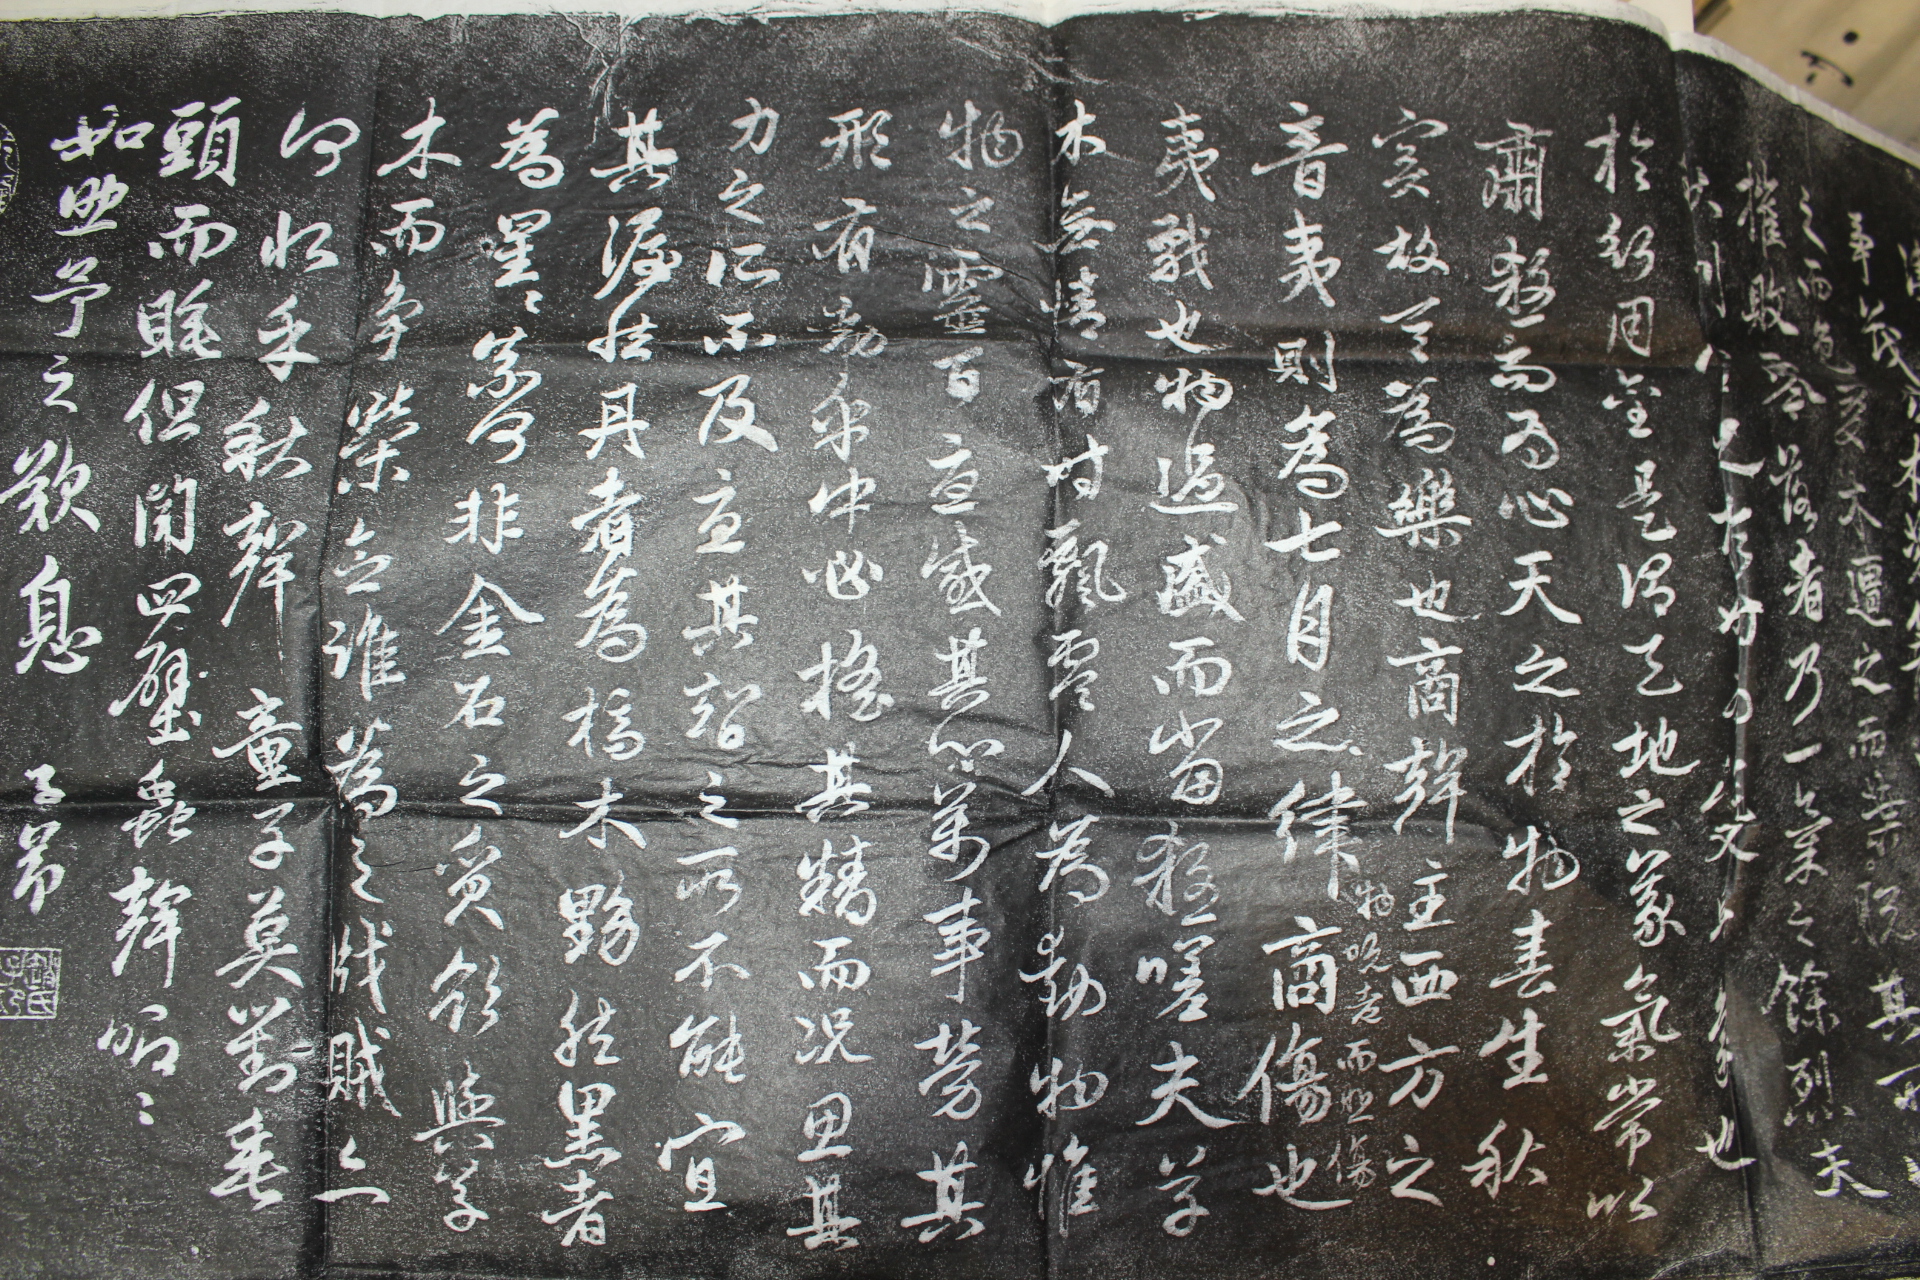 之而色變木遭之而葉脫其
摧敗零落者乃一氣之餘烈夫
也
於行用金是謂天地之義氣常以
肅殺而為心天之於物春生秋
實故其為樂也商聲主西方之
音夷則為七月之律商傷也
物既老而悲傷
夷戮也物過盛而當殺嗟夫草
木無情有時飄零人為動物惟
物之靈百憂感其心萬事勞其
形有動乎中必搖其精而況思其
力之所不及憂其智之所不能宜
其渥然丹者為槁木黟然黑者
為星〻奈何非金石之質欲與草
木而爭榮念誰為之戕賊亦
何恨乎秋聲童子莫對垂
頭而睡但聞四壁蟲聲唧〻
如助予之歎息 子昂
趙氏子昂